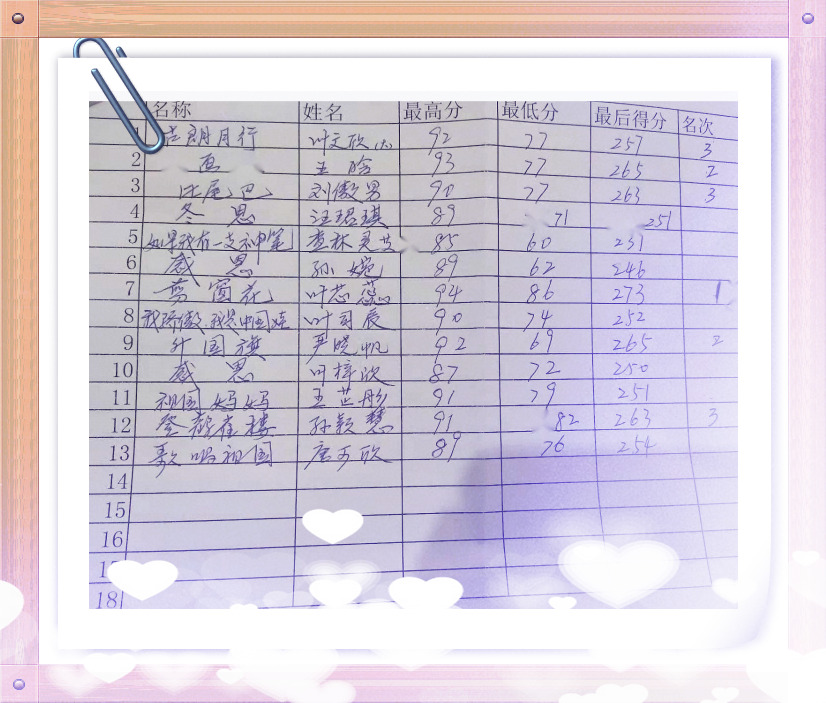 名称 姓名 最高分 最低分 最后得分 名次
古朗月行 叶文欣 92 77 257 3
2 画 王晗 93 77 265 2
3 比尾巴 刘傲男 90 77 263 3
4 冬思 汪琨琪 89 71 251
5 如果我有一支神笔 查林灵芝 85 60 231
6 感恩 孙婉 89 62 246
7 剪窗花 叶芯蕊 94 86 273 1
8 我骄傲,我是中国娃 叶司辰 90 74 252
9 升国旗 尹晓帆 92 69 265 2
10 感恩 叶梓欣 87 72 250
11 祖国妈妈 王芷彤 91 79 251
12 登鹳雀楼 孙颖慧 91 82 263 3
13 歌唱祖国 唐可欣 89 76 254
14
15
16
18